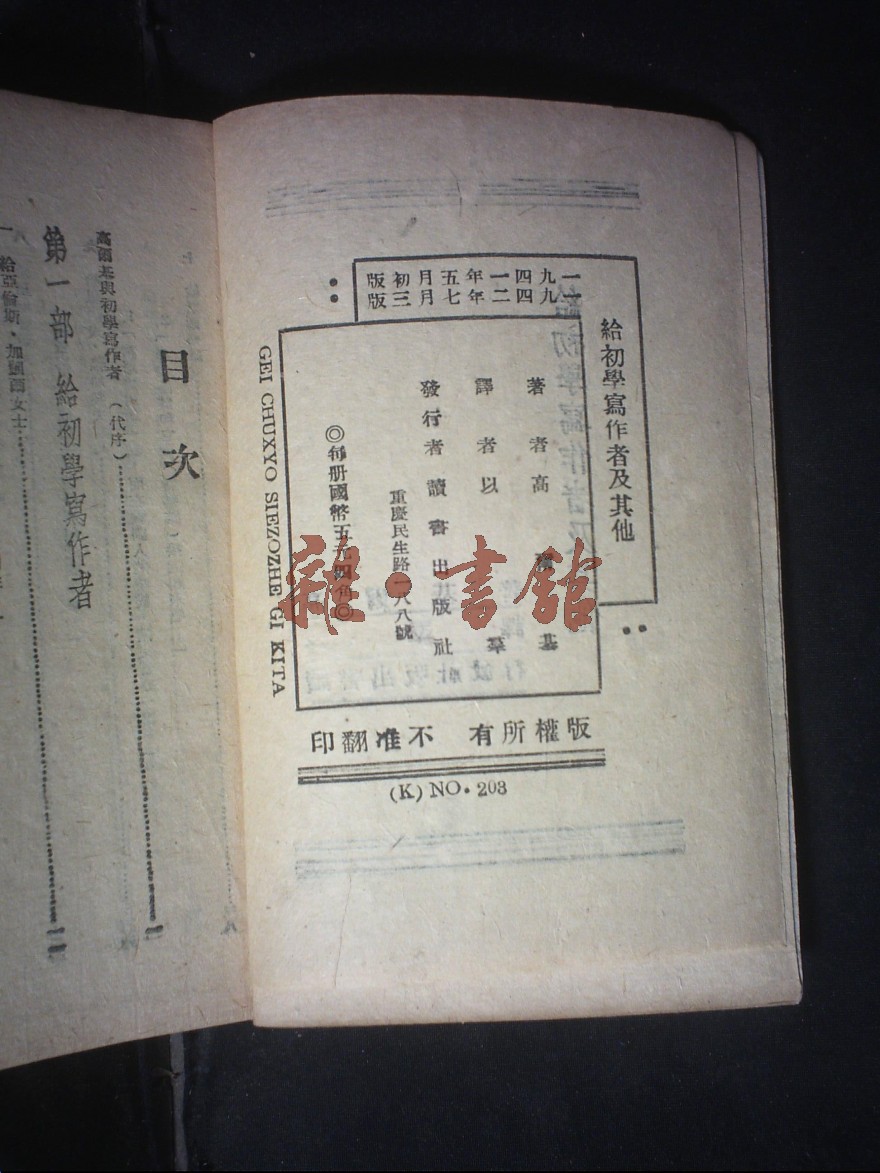 一九四一年五月初版
一九四二年七月三版
給初學寫作者及其他
著者高爾基
譯者以羣
發行者讀書出版社
重慶民生路一八八號
◎每册國幣五元四角◎
GEI CHUXYO SIEZOZHE GI KITA
版權所有 不准翻印
(K) NO. 203
雜·書館
目次
高爾基與初學寫作者(代序)
第一部 給初學寫作者
一 給亞倫斯·加爾女士